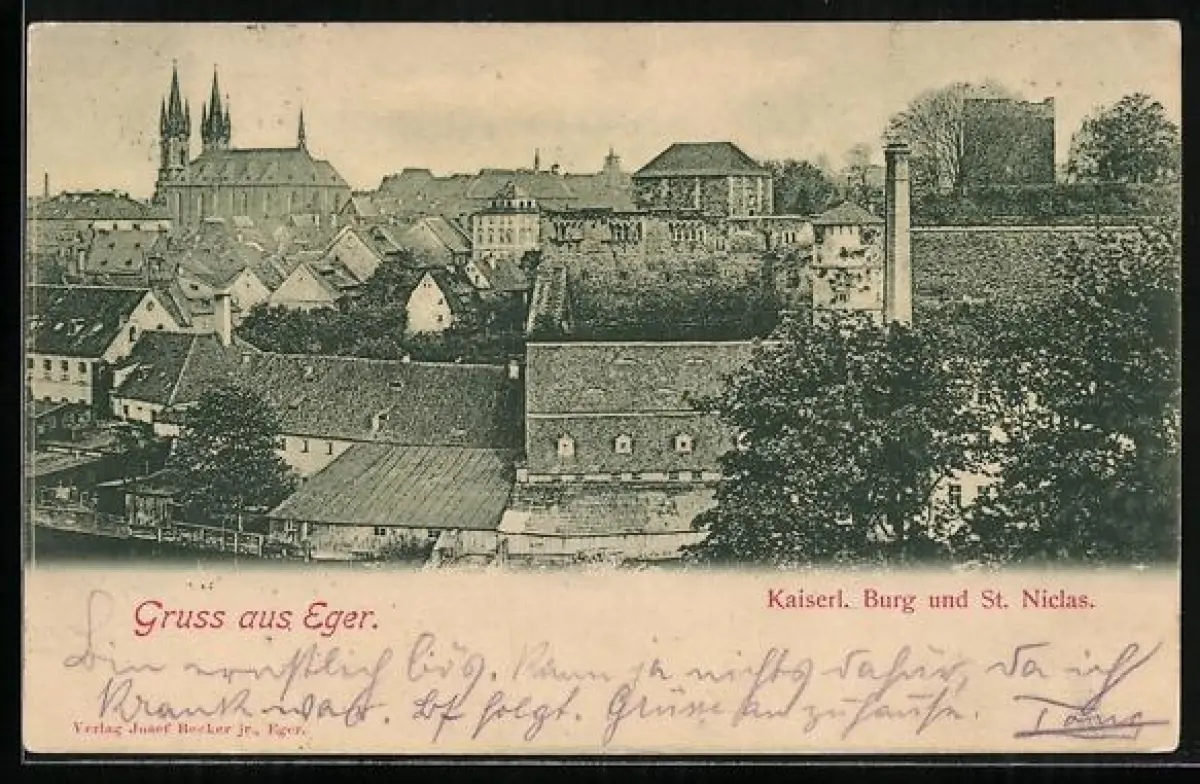 Gruss aus Eger.
Kaiserl. Burg und St. Niclas.
Bin ernstlich bös. Kann ja nichts dafür, da ich
krank war. Bf folgt. Grüsse an zuhause.
Verlag Josef Becker jr., Eger.